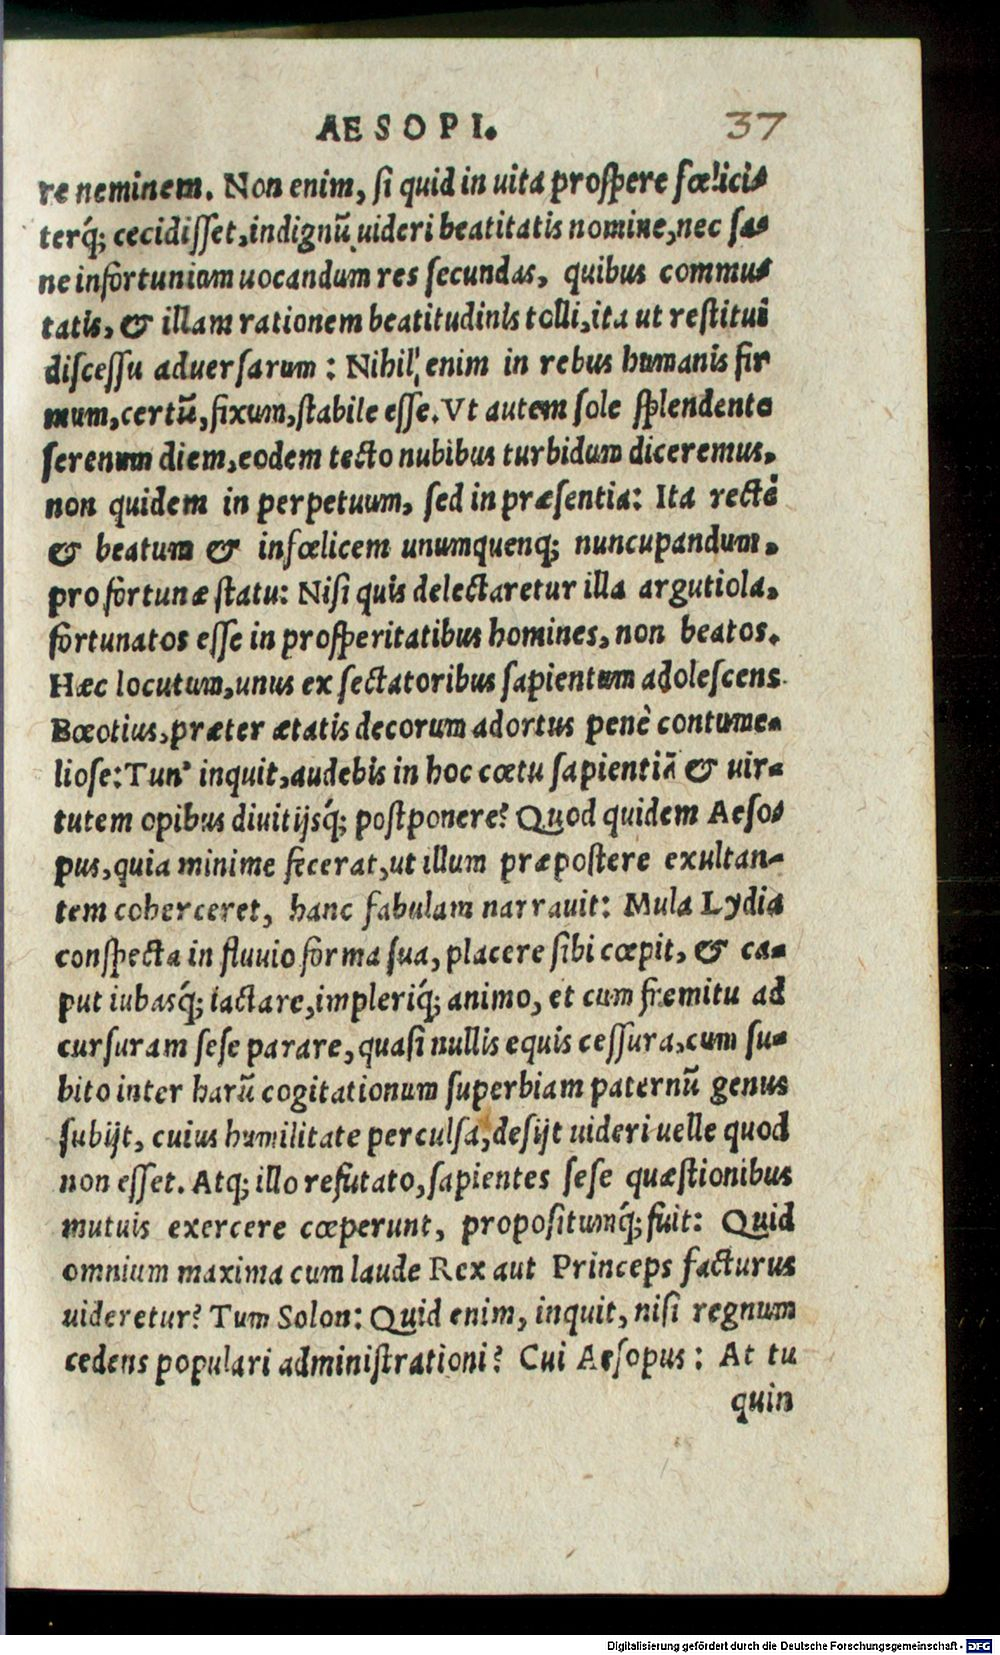 AESOPI. 37
re neminem. Non enim, ſi quid in uita proſpere fœlici-
terq́; cecidiſſet, indignũ uideri beatitatis nomine, nec ſa-
ne infortunium uocandum res ſecundas, quibus commu-
tatis, & illam rationem beatitudinis tolli, ita ut reſtitui
diſceſſu aduerſarum: Nihil enim in rebus humanis fir
mum, certũ, fixum, ſtabile eſſe. Vt autem ſole ſplendente
ſerenum diem, eodem tecto nubibus turbidum diceremus,
non quidem in perpetuum, ſed in præſentia: Ita rectè
& beatum & infœlicem unumquenq; nuncupandum,
pro fortunæ ſtatu: Niſi quis delectaretur illa argutiola,
fortunatos eſſe in proſperitatibus homines, non beatos.
Hæc locutum, unus ex ſectatoribus ſapientum adoleſcens
Bœotius, præter ætatis decorum adortus penè contume-
lioſe: Tun' inquit, audebis in hoc cœtu ſapientiã & uir-
tutem opibus diuitijsq́; poſtponere? Quod quidem Aeſo-
pus, quia minime fecerat, ut illum præpoſtere exultan-
tem coherceret, hanc fabulam narrauit: Mula Lydia
conſpecta in fluuio forma ſua, placere ſibi cœpit, & ca-
put iubasq́; iactare, impleriq́; animo, et cum fremitu ad
curſuram ſeſe parare, quaſi nullis equis ceſſura, cum ſu-
bito inter harũ cogitationum ſuperbiam paternũ genus
ſubijt, cuius humilitate perculſa, deſijt uideri uelle quod
non eſſet. Atq; illo refutato, ſapientes ſeſe quæſtionibus
mutuis exercere cœperunt, propoſitumq́; fuit: Quid
omnium maxima cum laude Rex aut Princeps facturus
uideretur? Tum Solon: Quid enim, inquit, niſi regnum
cedens populari adminiſtrationi? Cui Aeſopus: At tu
quin
Digitalisierung gefördert durch die Deutsche Forschungsgemeinschaft - DFG